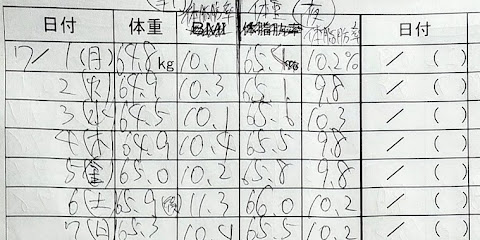 日付 体重 体脂肪率 体重 夜 体脂肪率 日付 体重
BMI 体脂肪率
7/1(月) 64.8kg 10.1 65. 10.2% /( )
2(火) 64.9 10.3 65.1 9.8 /( )
3(水) 64.5 10.1 65.6 10.3 /( )
4(木) 64.9 10.4 65.5 9.8 /( )
5(金) 65.0 10.2 65.8 9.8 /( )
6(土) 65.9 11.3 66.0 10.2 /( )
7(日) 65.3 10.4 65.5 10.2 /( )